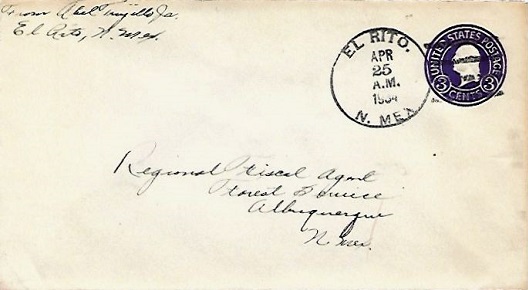 From Abel Trujillo, Jr.
El Rito, N. Mex.
EL RITO.
APR
25
A.M.
1934
N. MEX
UNITED STATES POSTAGE
3 CENTS 3
Regional Fiscal Agent
Forest Service
Albuquerque
N. Mex.